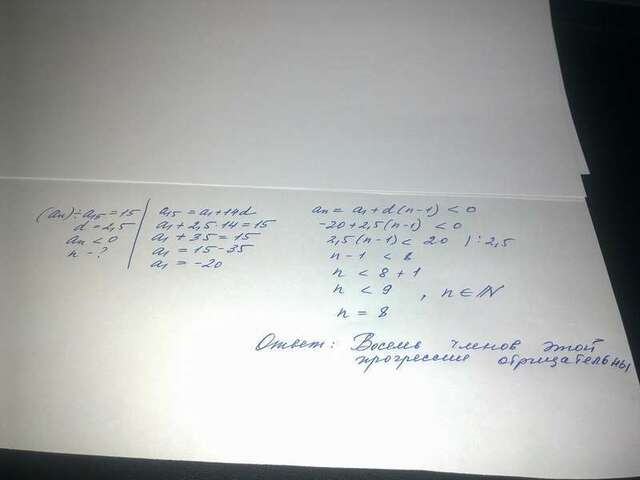 (an) ÷ a15 = 15
d = 2,5
an < 0
n - ?
a15 = a1 + 14d
a1 + 2,5 · 14 = 15
a1 + 35 = 15
a1 = 15 - 35
a1 = -20
an = a1 + d (n-1) < 0
-20 + 2,5 (n-1) < 0
2,5 (n-1) < 20 | : 2,5
n - 1 < 8
n < 8 + 1
n < 9 , n ∈ N
n = 8
Ответ: Восемь членов этой
прогрессии отрицательны